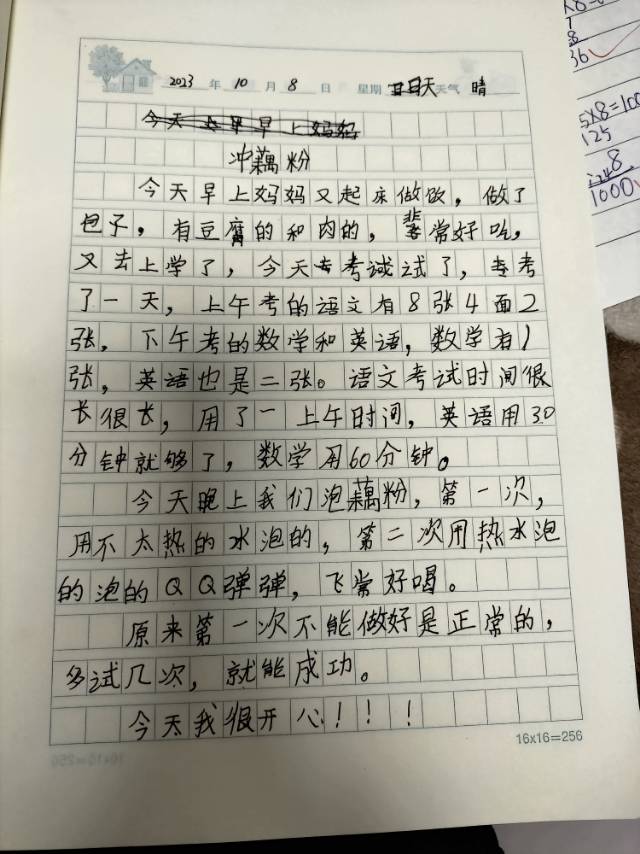 2023年10月8日 星期日天气 晴
今天早上妈妈
冲藕粉
今天早上妈妈又起床做饭，做了
包子，有豆腐的和肉的，非常好吃，
又去上学了，今天考试了，考
了一天，上午考的语文有8张4面2
张，下午考的数学和英语，数学有1
张，英语也是二张。语文考试时间很
长很长，用了一上午时间，英语用30
分钟就够了，数学用60分钟。
今天晚上我们泡藕粉，第一次，
用不太热的水泡的，第二次用热水泡
的泡的QQ弹弹，飞常好喝。
原来第一次不能做好是正常的，
多试几次，就能成功。
今天我很开心！！！
16x16=256
36
5x8=100
125
8
1000